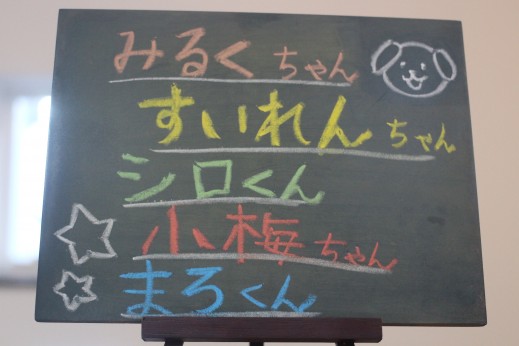 みるくちゃん
すいれんちゃん
シロくん
小梅ちゃん
まろくん